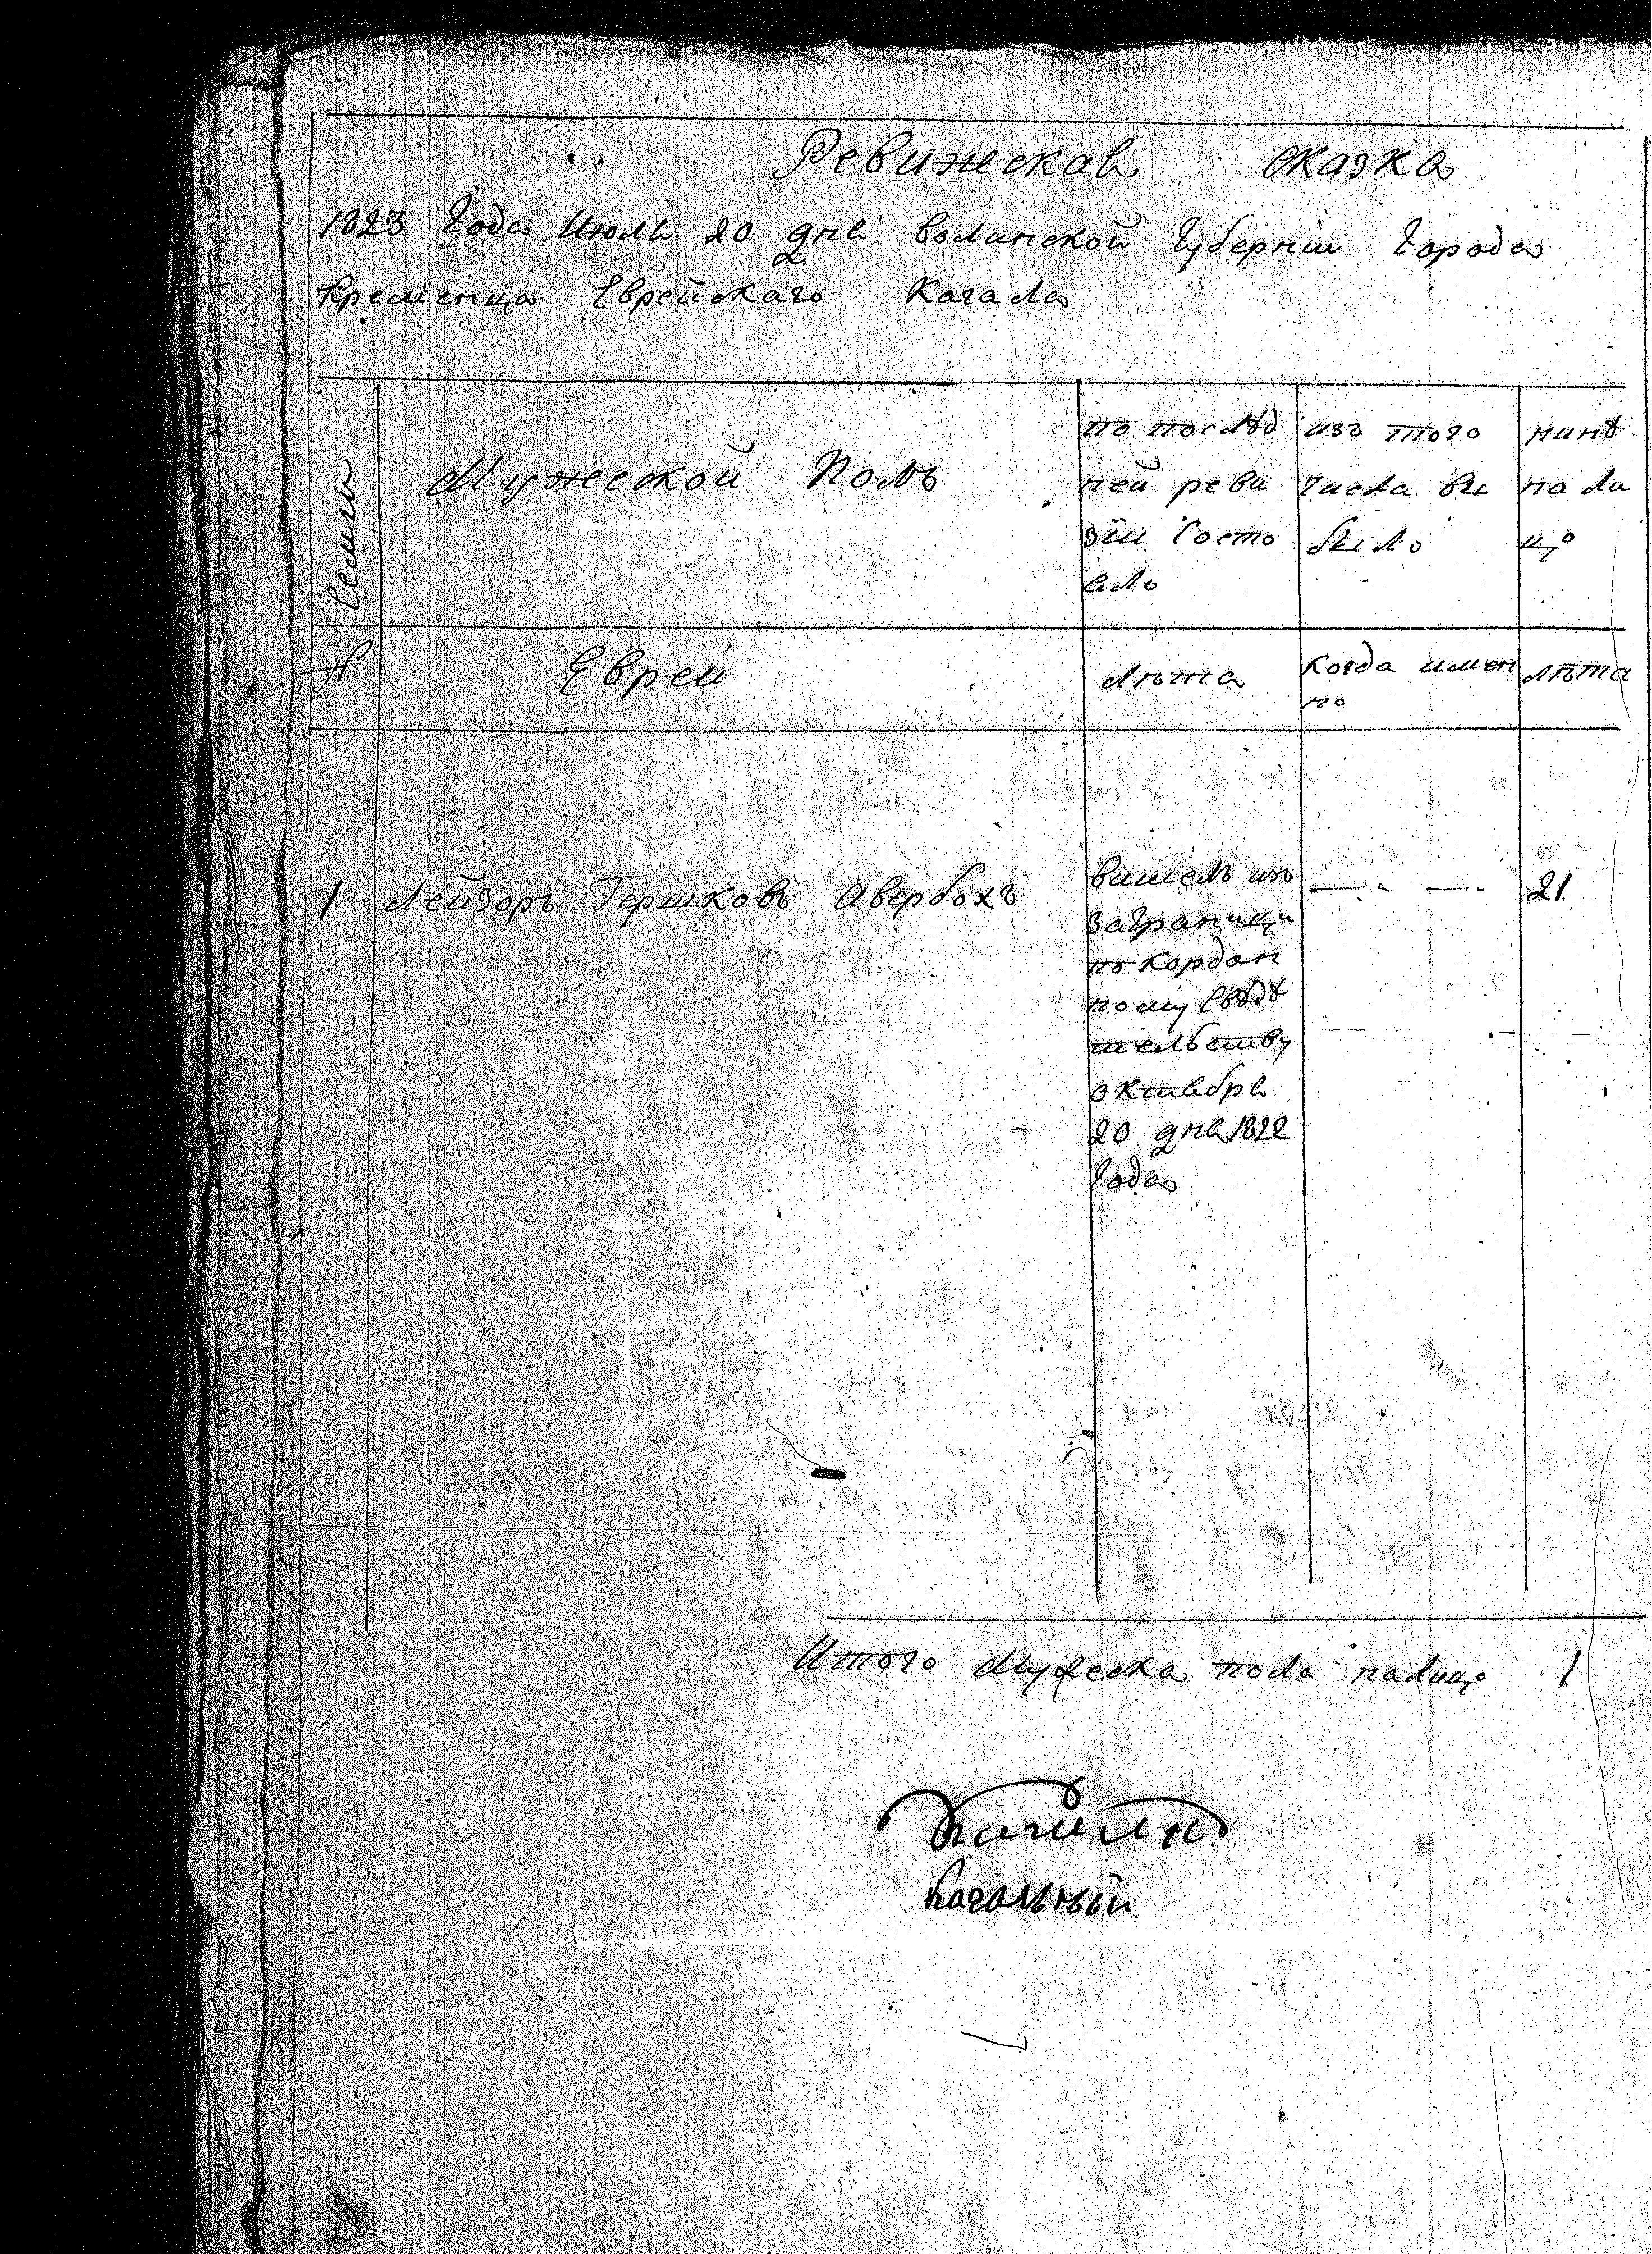 Ревижская сказка
1823 Года Июля 20 дня волинской Губернии Города
Кременца Еврейскаго Кагала
Семьи
Мужеской Полъ
по послѣд
ней реви
зїи Состо
яло
изъ того
числа вы
было
нинѣ
на ли
цо
№
Евреи
лѣта
Когда имен
но
лѣта
1 Лейзоръ Гершковъ Авербохъ
вишелъ изъ
заграници
по Кордон
ному Свѣдѣ
тельству
октября
20 дня 1822
Года
21.
Итого Мужеска пола налицо 1
Кагальный